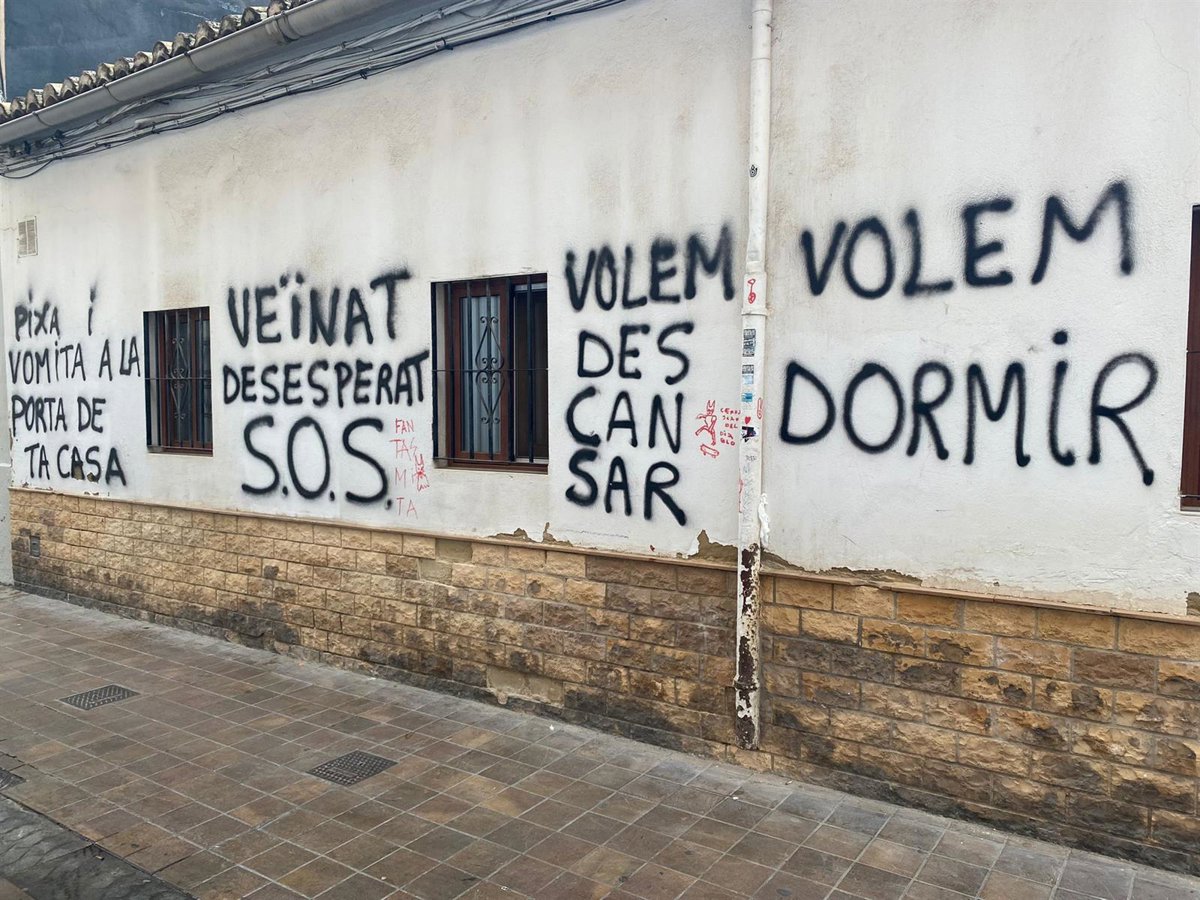 PiXA i
VOMiTA A LA
PORTA DE
TA CASA
VEÏNAT
DESESPERAT
S.O.S.
FAN
TAS
MI
TA
VOLEM
DES
CAN
SAR
VOLEM
DORMiR